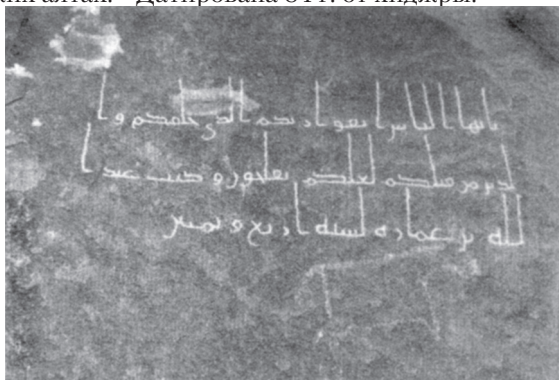 Датирована 84 г. от хиджры.
يايها الناس اتقوا ربكم الذي خلقكم وا
لذين من قبلكم لعلكم تفلحون وكتب عبدا
لله بن عمارة لسنة اربع وثمنين